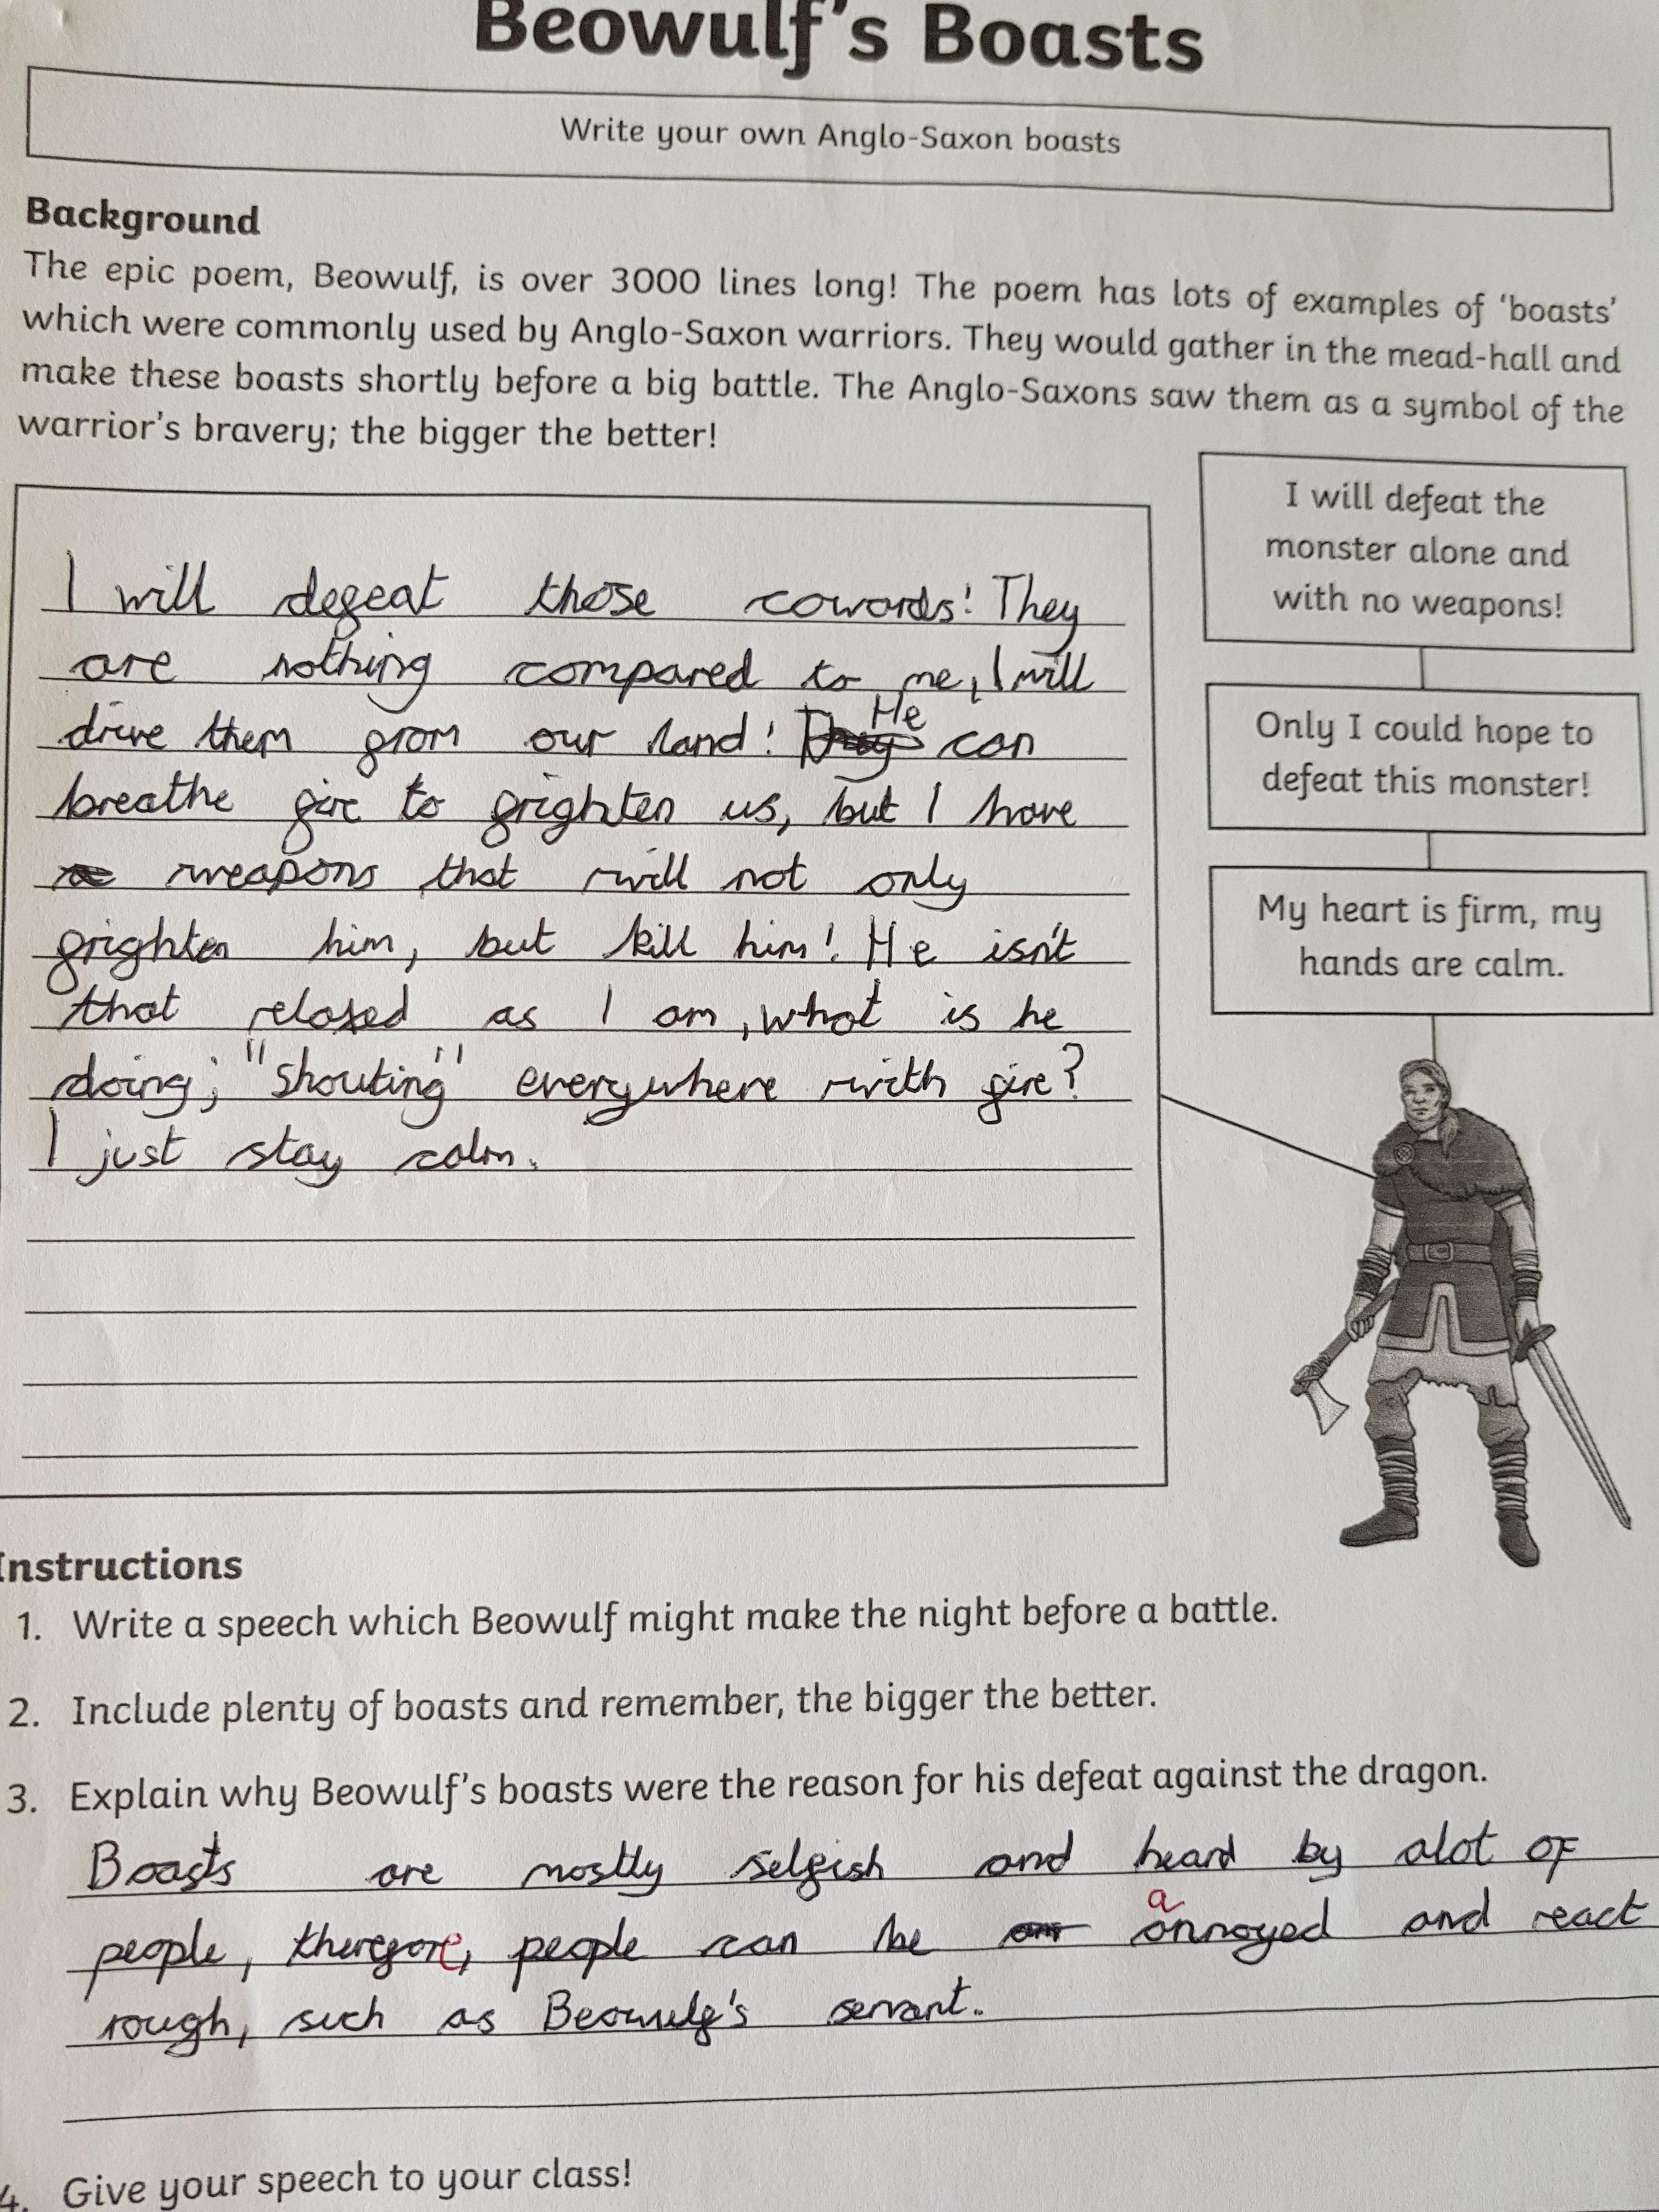 Beowulf's Boasts
Write your own Anglo-Saxon boasts
Background
The epic poem, Beowulf, is over 3000 lines long! The poem has lots of examples of 'boasts'
which were commonly used by Anglo-Saxon warriors. They would gather in the mead-hall and
make these boasts shortly before a big battle. The Anglo-Saxons saw them as a symbol of the
warrior's bravery; the bigger the better!
I will defeat those cowards! They
are nothing compared to me, I will
drive them from our land! He can
breathe fire to frighten us, but I have
weapons that will not only
frighten him, but kill him! He isn't
that relaxed as I am, what is he
doing; "shouting" everywhere with fire?
I just stay calm.
I will defeat the
monster alone and
with no weapons!
Only I could hope to
defeat this monster!
My heart is firm, my
hands are calm.
Instructions
1. Write a speech which Beowulf might make the night before a battle.
2. Include plenty of boasts and remember, the bigger the better.
3. Explain why Beowulf's boasts were the reason for his defeat against the dragon.
Boasts are mostly selfish and heard by alot of
people, therefore, people can be annoyed and react
rough, such as Beowulf's servant.
4. Give your speech to your class!